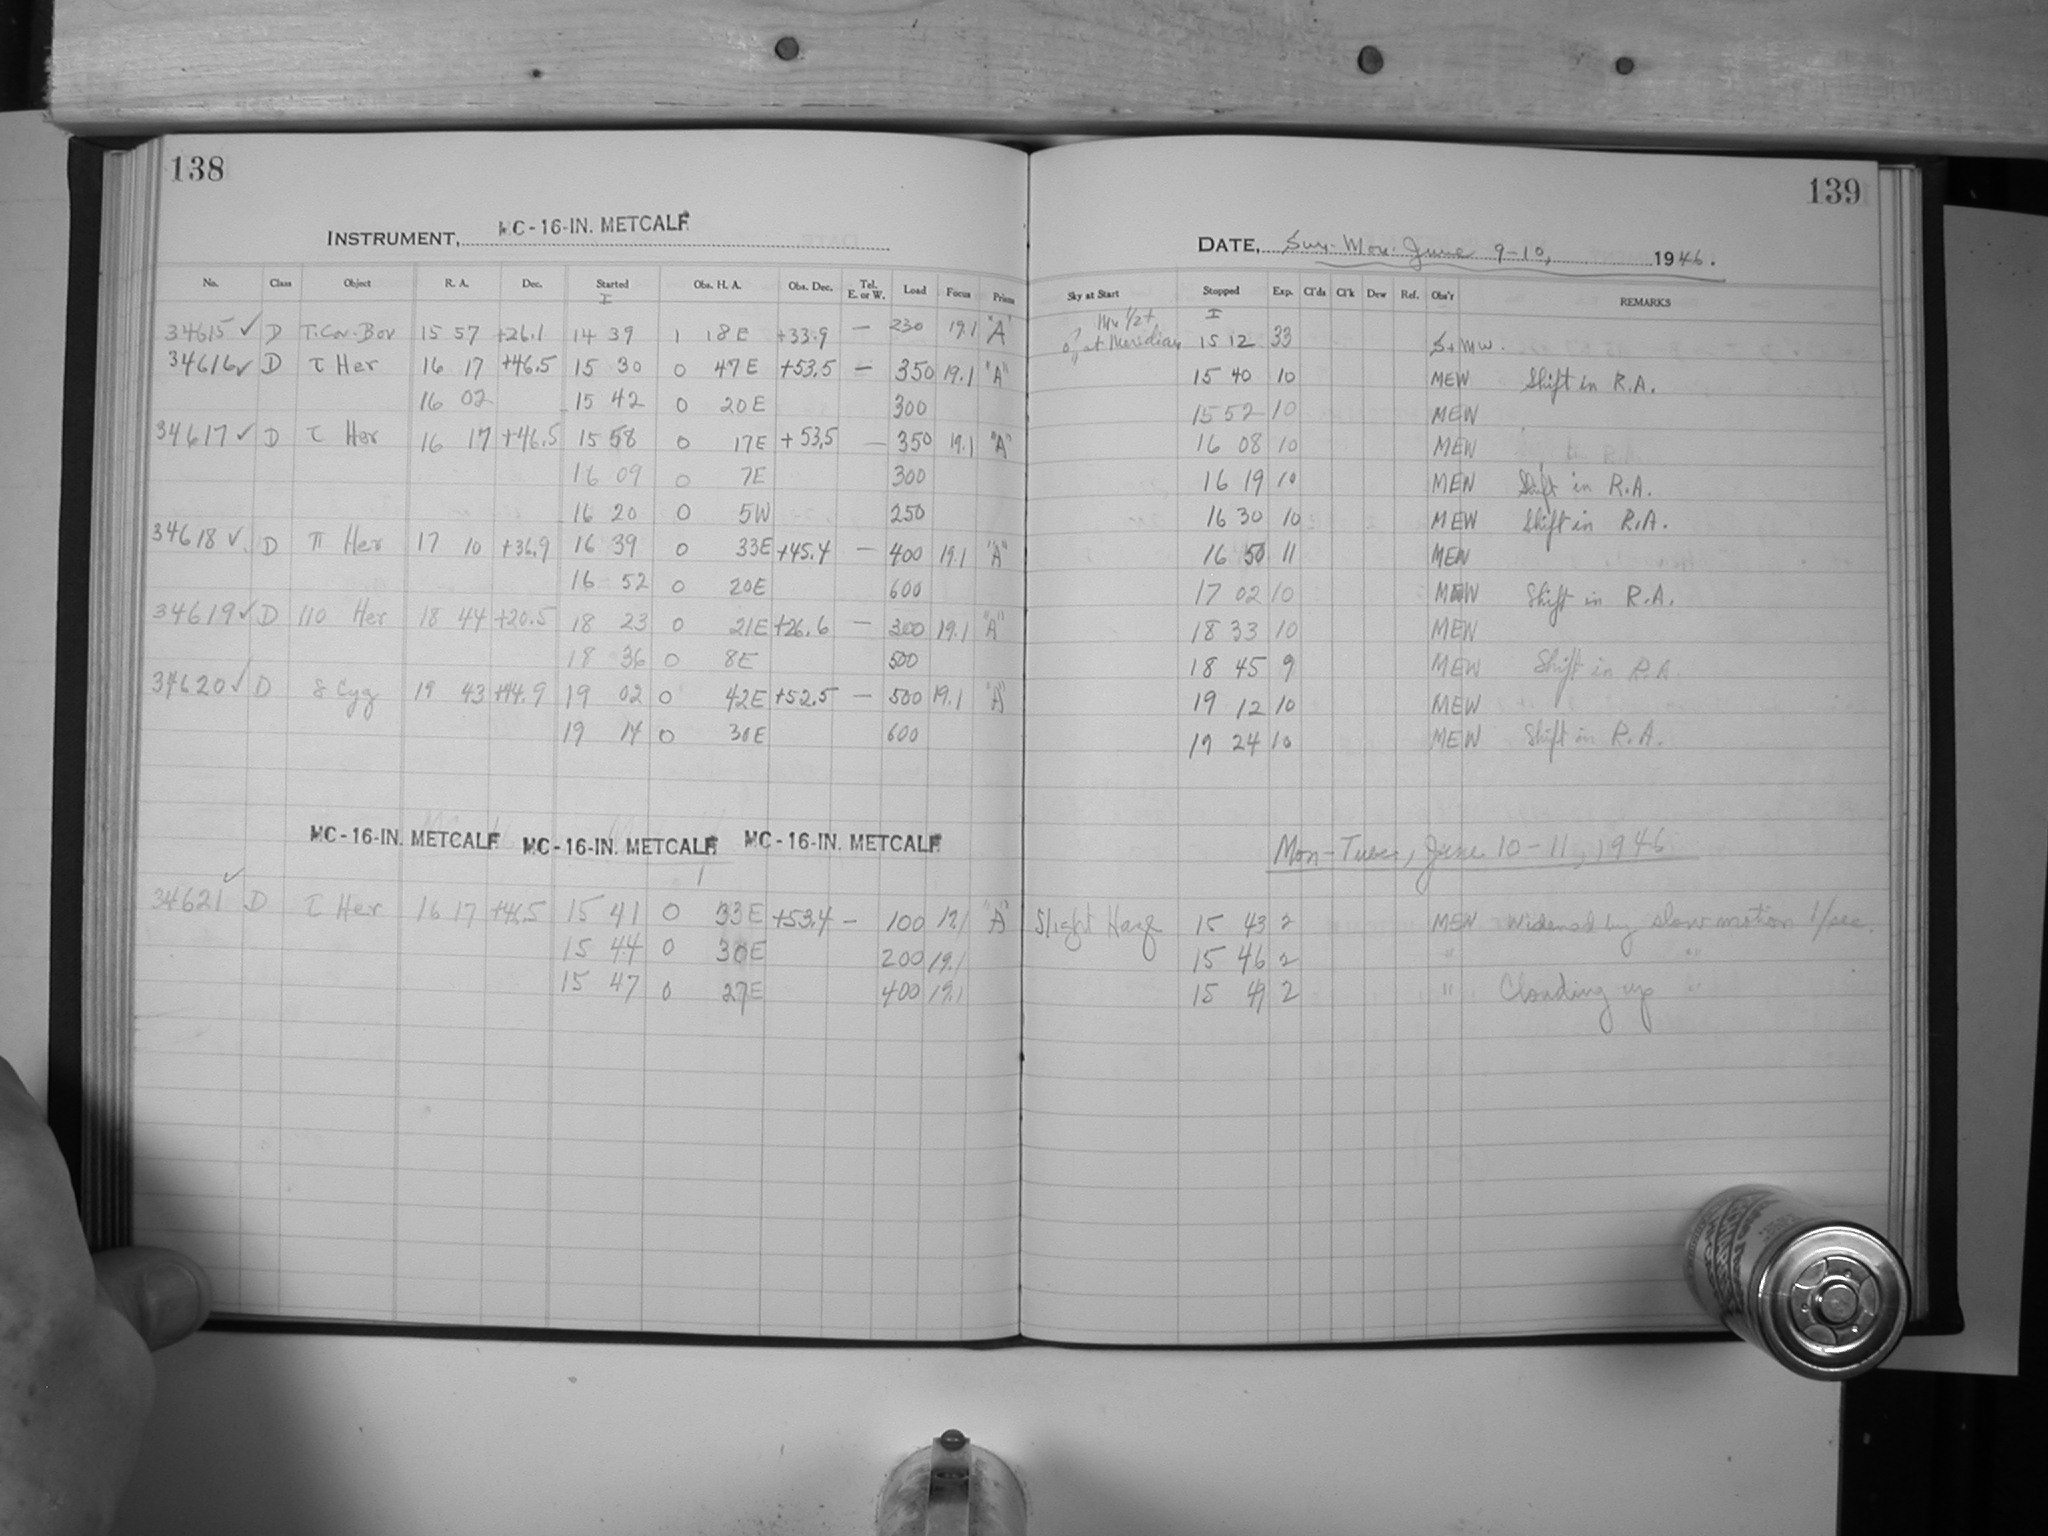 138
INSTRUMENT, MC-16-IN. METCALF
No. Class Object R. A. Dec. Started Obs. H. A. Obs. Dec. Tel. E. or W. Load Focus Prism
I
34615 ✓ D T. Cor. Bor 15 57 +26.1 14 39 1 18 E +33.9 — 230 19.1 "A"
34616 ✓ D τ Her 16 17 +46.5 15 30 0 47 E +53.5 — 350 19.1 "A"
16 02 15 42 0 20 E 300
34617 ✓ D τ Her 16 17 +46.5 15 58 0 17E +53.5 — 350 19.1 "A"
16 09 0 7E 300
16 20 0 5W 250
34618 ✓ D π Her 17 10 +36.9 16 39 0 33E +45.4 — 400 19.1 "A"
16 52 0 20E 600
34619 ✓ D 110 Her 18 44 +20.5 18 23 0 21E +26.6 — 300 19.1 "A"
18 36 0 8E 500
34620 ✓ D δ Cyg 19 43 +44.9 19 02 0 42E +52.5 — 500 19.1 "A"
19 14 0 30E 600
MC-16-IN. METCALF MC-16-IN. METCALF MC-16-IN. METCALF
34621 ✓ D τ Her 16 17 +46.5 15 41 0 33E +53.4 — 100 19.1 "A"
15 44 0 30E 200 19.1
15 47 0 27E 400 19.1
139
DATE, Sun-Mon. June 9-10, 1946.
Sky at Start Stopped Exp. Cl'ds Cl'k Dew Ref. Obs'r REMARKS
I
1/2+
at Meridian 15 12 33 S+MW.
15 40 10 MEW Shift in R.A.
15 52 10 MEW
16 08 10 MEW
16 19 10 MEW Shift in R.A.
16 30 10 MEW Shift in R.A.
16 50 11 MEW
17 02 10 MEW Shift in R.A.
18 33 10 MEW
18 45 9 MEW Shift in R.A.
19 12 10 MEW
19 24 10 MEW Shift in R.A.
Mon-Tues, June 10-11, 1946
Slight Haze 15 43 2 MEW Widened by slow motion 1/sec.
15 46 2 " "
15 49 2 " Clouding up "